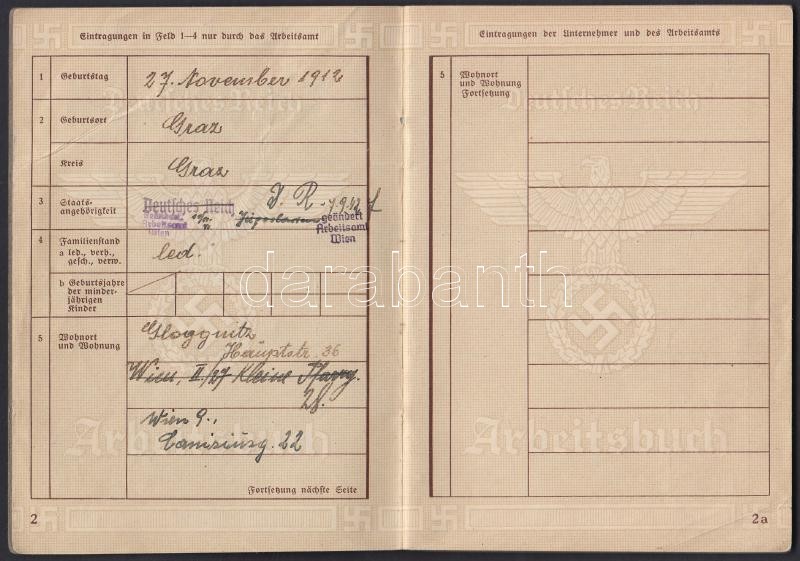 Eintragungen in Feld 1—4 nur durch das Arbeitsamt
1 Geburtstag 27. November 1912
2 Geburtsort Graz
Kreis Graz
3 Staats-
angehörigkeit
Deutsches Reich
Arbeitsamt
Wien
D. R.
Jugoslawien
geändert
Arbeitsamt
Wien
4 Familienstand
a led., verh.,
gesch., verw.
led.
b Geburtsjahre
der minder-
jährigen
Kinder
5 Wohnort
und Wohnung
Gloggnitz
Hauptstr. 36
Wien, II/27 Kleine
28.
Wien 9.,
Canisiusg. 22
Fortsetzung nächste Seite
2
Eintragungen der Unternehmer und des Arbeitsamts
5 Wohnort
und Wohnung
Fortsetzung
2a
Deutsches Reich
Arbeitsbuch
Deutsches Reich
Arbeitsbuch
darabanth